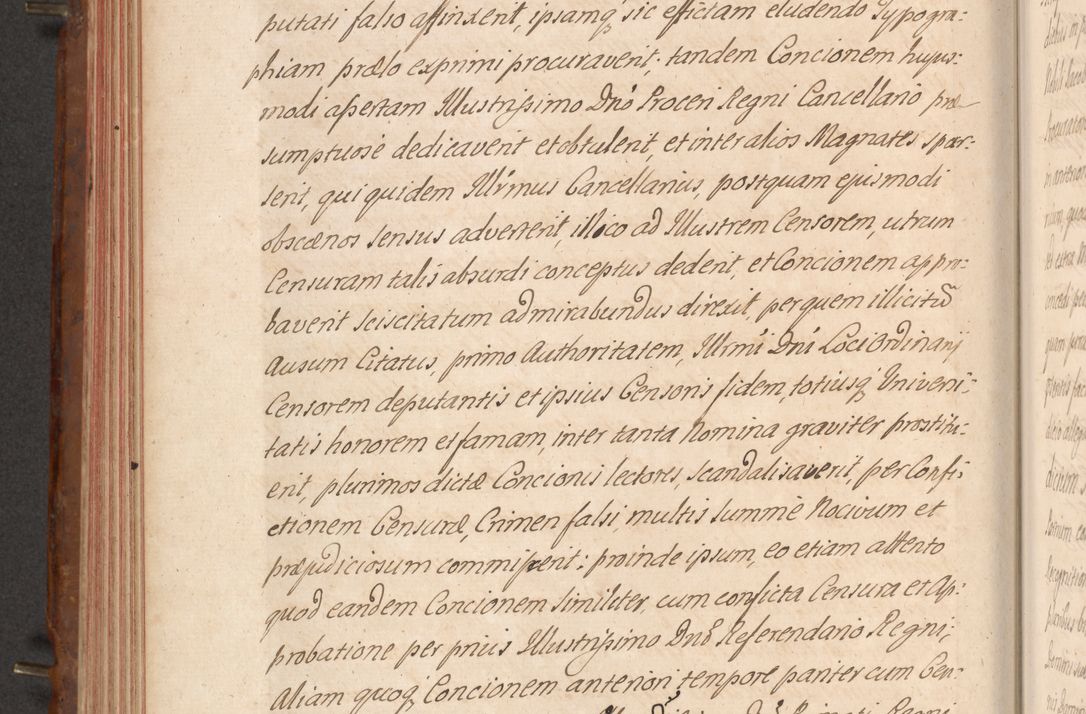 putati falso affinxerit, ipsamq́ sic effictam eludendo Typogra:
phiam prælo exprimi procuraverit, tandem Concionem hujus:
modi assertam Illustrissimo Dnō Proceri Regni Cancellario præ
sumptuosè dedicaverit et obtulerit, et inter alios Magnates spar:
serit, qui quidem Illr̃mus Cancellarius, postquam ejusmodi
obscænos sensus adverterit, illico ad Illustrem Censorem, utrum
Censuram talis absurdi conceptus dederit, et Concionem appro:
baverit sciscitatum admirabundus direxit, per quem illicitū
Ausum Citatus, primo Authoritatem, Illrmi Dni Loci Ordinarij
Censorem deputantis et ipsius Censoris fidem, totiusq́ Universi:
tatis honorem et famam, inter tanta Nomina graviter prostitu:
erit, plurimos dictæ Concionis lectores, scandalisaverit, per Confi:
ctionem Censuræ, Crimen falsi multis summè Nocivum et
præjudiciosum commiserit: proinde ipsum, eo etiam attento
quod eandem Concionem similiter, cum conficta Censura et Ap:
probatione per prius Illustrissimo Dnō Referendario Regni,
Aliam quoq́ Concionem anteriori tempore pariter cum Cen: